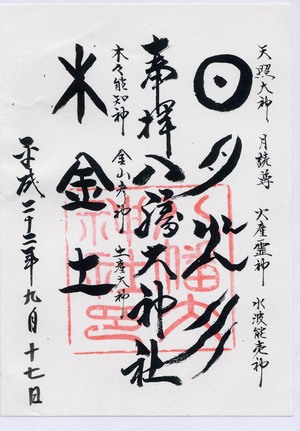 天照大神 月読尊 火産霊神 水波能売神
日月火水
奉拝 八幡大神社
木々能知神 金山彦神 土産大神
木金土
平成二十二年九月十七日
八幡大
神社印